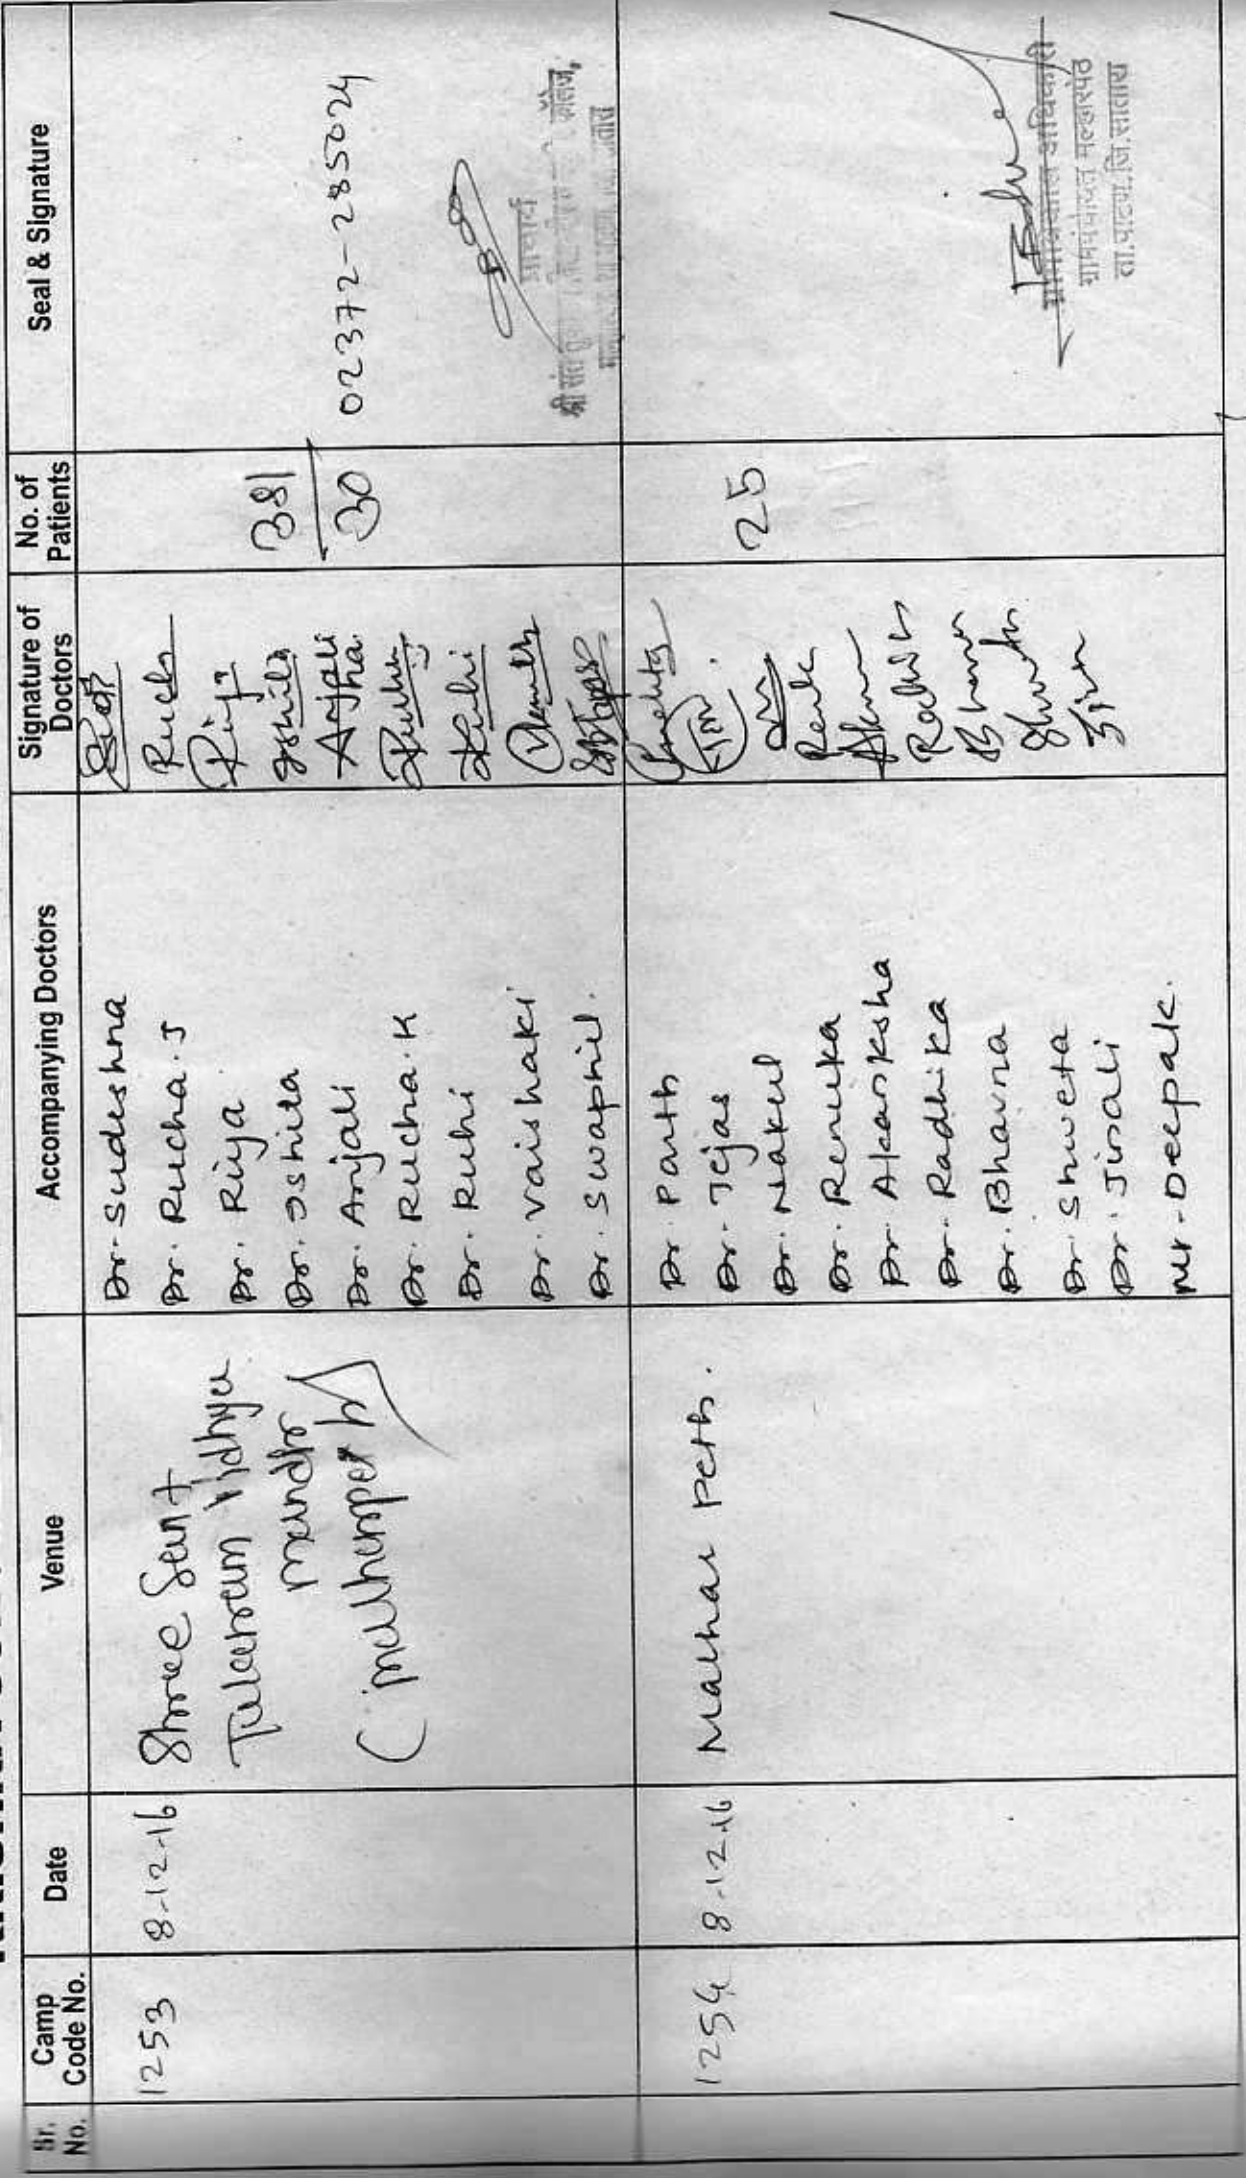 Sr. No.
Camp Code No.
Date
Venue
Accompanying Doctors
Signature of Doctors
No. of Patients
Seal & Signature
1253
8-12-16
Shree Sant
Tukaram Vidhya
mandir
(malharpeth)
Dr. Sudeshna
Dr. Rucha.J
Dr. Riya
Dr. Ishita
Dr. Anjali
Dr. Rucha.K
Dr. Ruhi
Dr. Vaishaki
Dr. Swapnil.
Ruch
Riya
Ishita
Anjali
Jha
381
30
02372-285024
प्राचार्य
श्री संत
1254
8.12.16
Malhar Peth.
Dr. Parth
Dr. Tejas
Dr. Nakul
Dr. Renuka
Dr. Akanksha
Dr. Radhika
Dr. Bhavna
Dr. Shweta
Dr. Jinali
Mr. Deepak.
25
ग्रामपंचायत मल्हारपेठ
ता.पाटण,जि.सातारा